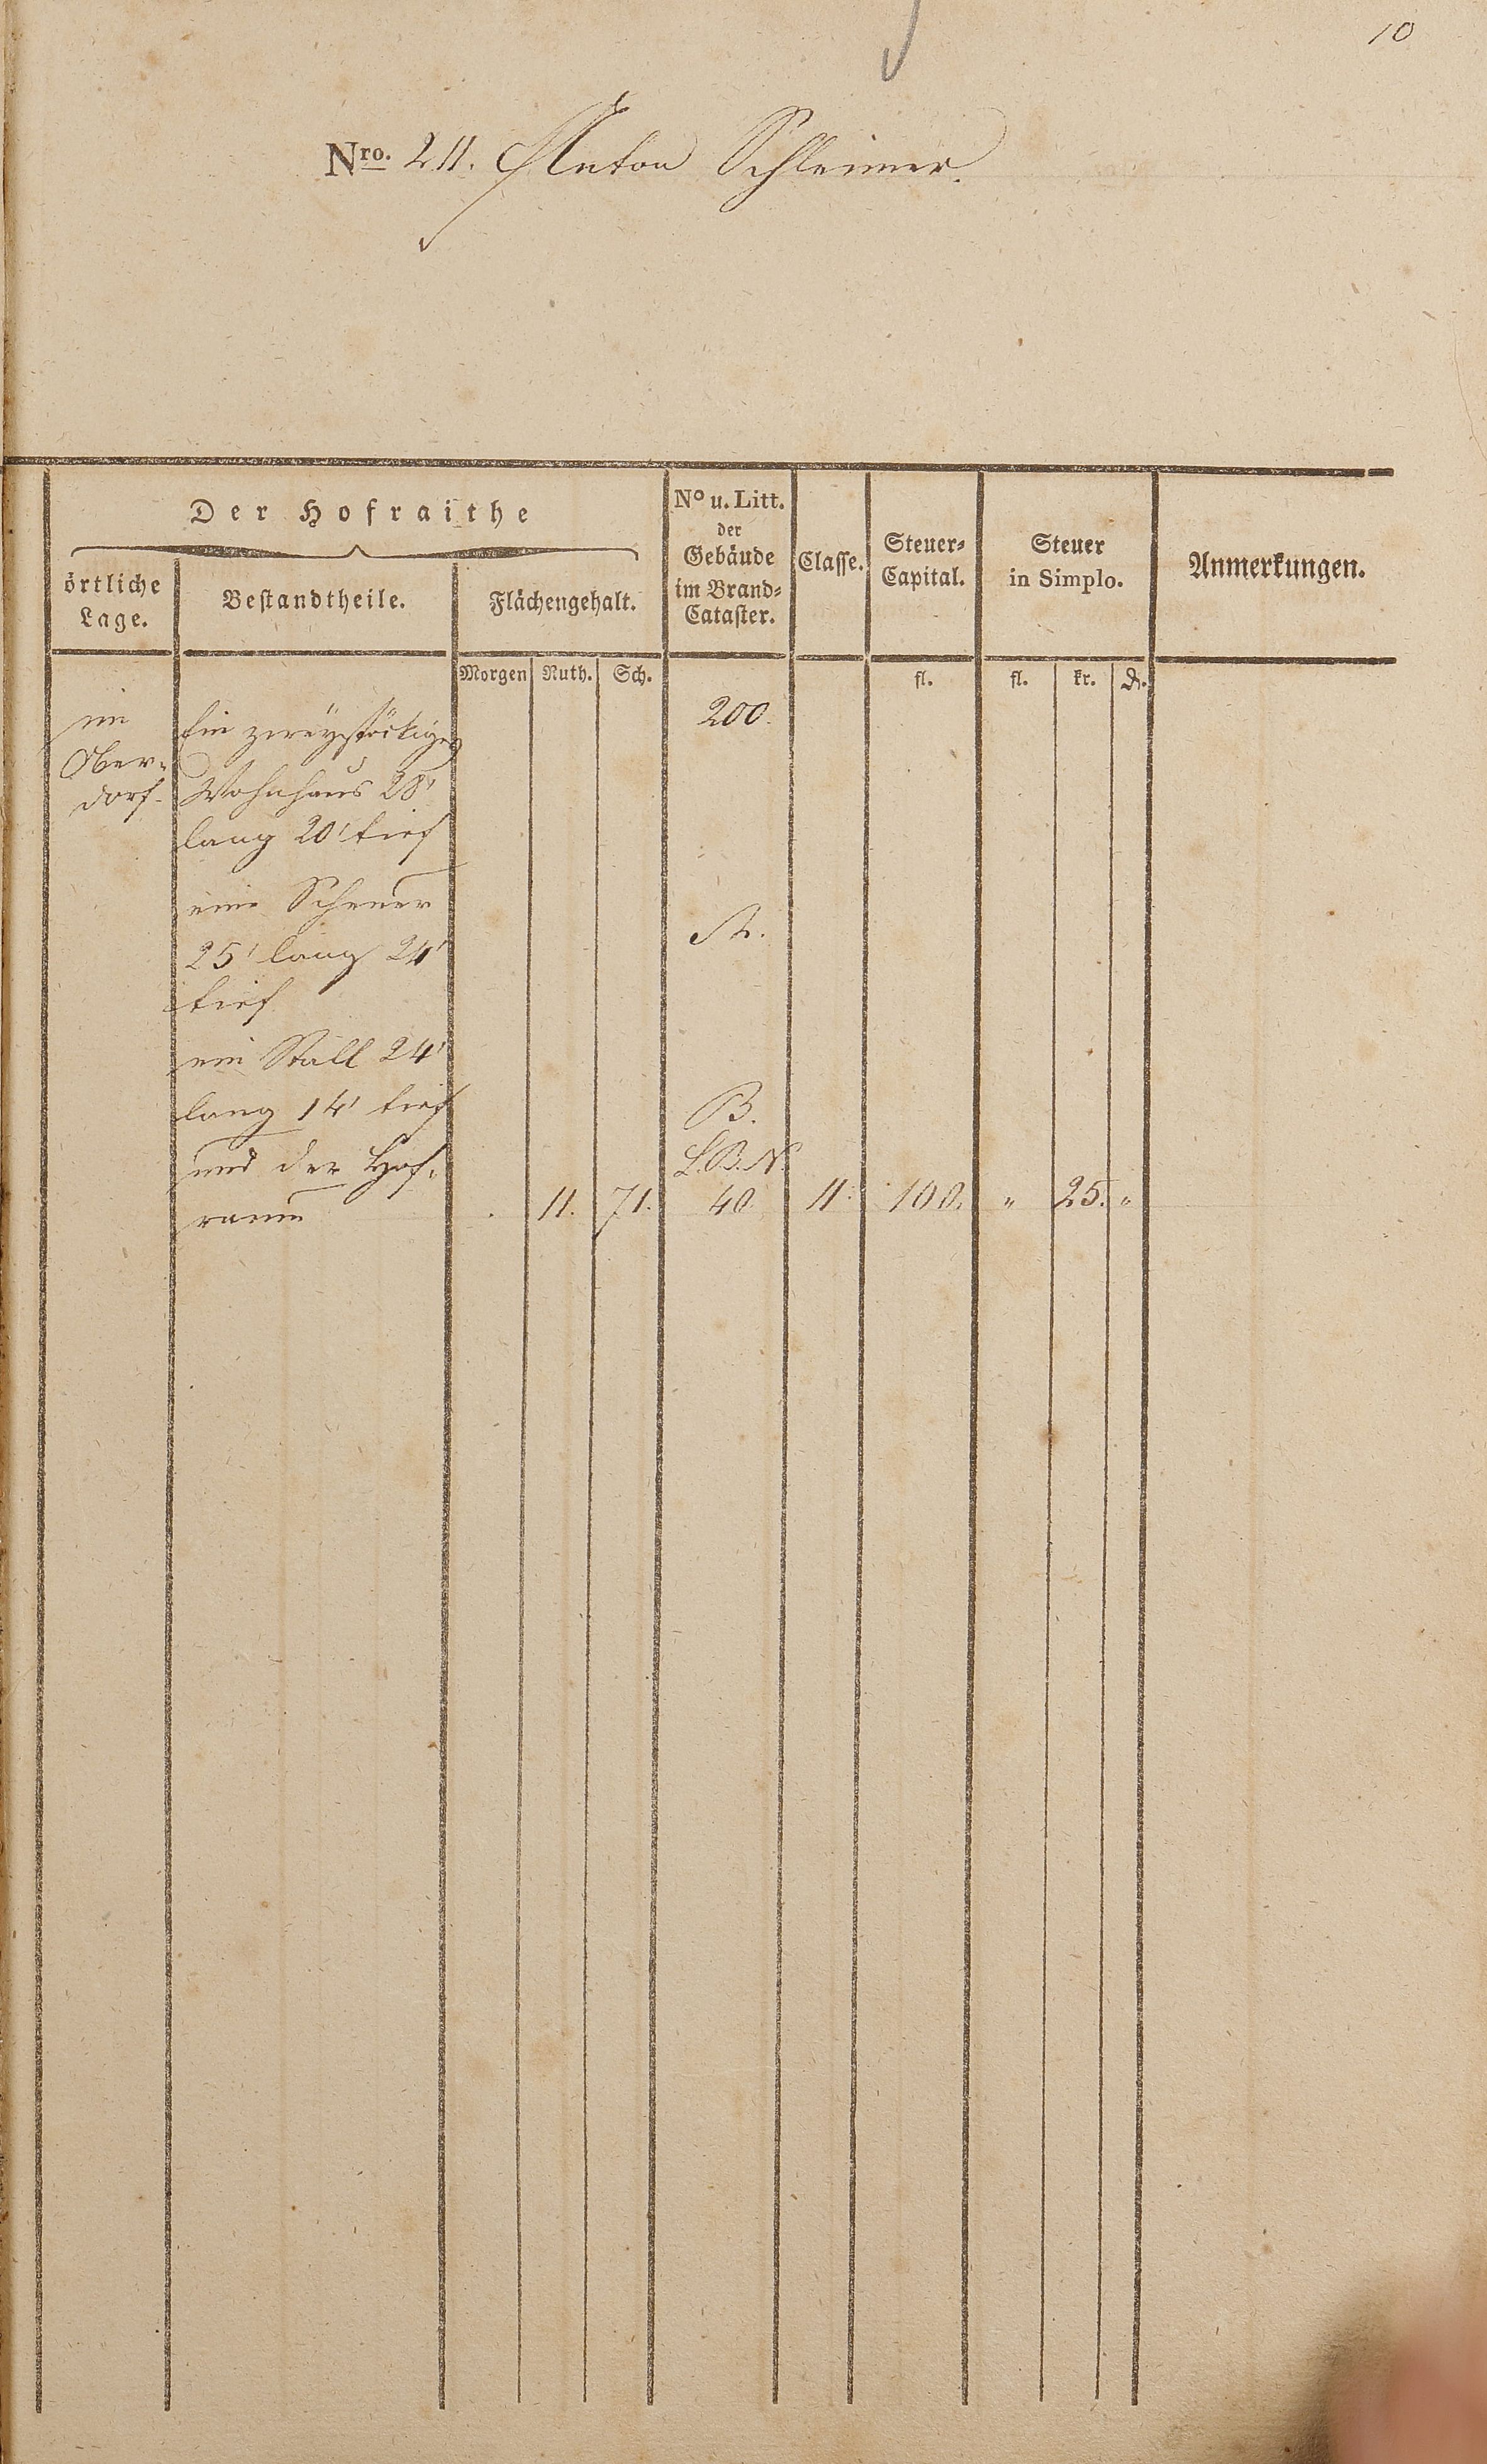 10
Nro. 211. Anton Schleimer.
Der Hofraithe
örtliche
Lage.
Bestandtheile.
Flächengehalt.
No u. Litt.
der
Gebäude
im Brand-
Cataster.
Classe.
Steuer-
Capital.
Steuer
in Simplo.
Anmerkungen.
Morgen Ruth. Sch. fl. fl. kr. ₰.
im
Ober-
dorf.
Ein zweystöckiges 200.
Wohnhaus 28'
lang 20' tief
eine Scheuer
25' lang 24' A.
tief
ein Stall 24'
lang 14' tief B.
und der Hof- L.B.N.
raum . 11. 71. 40 11. 100. " 25. "